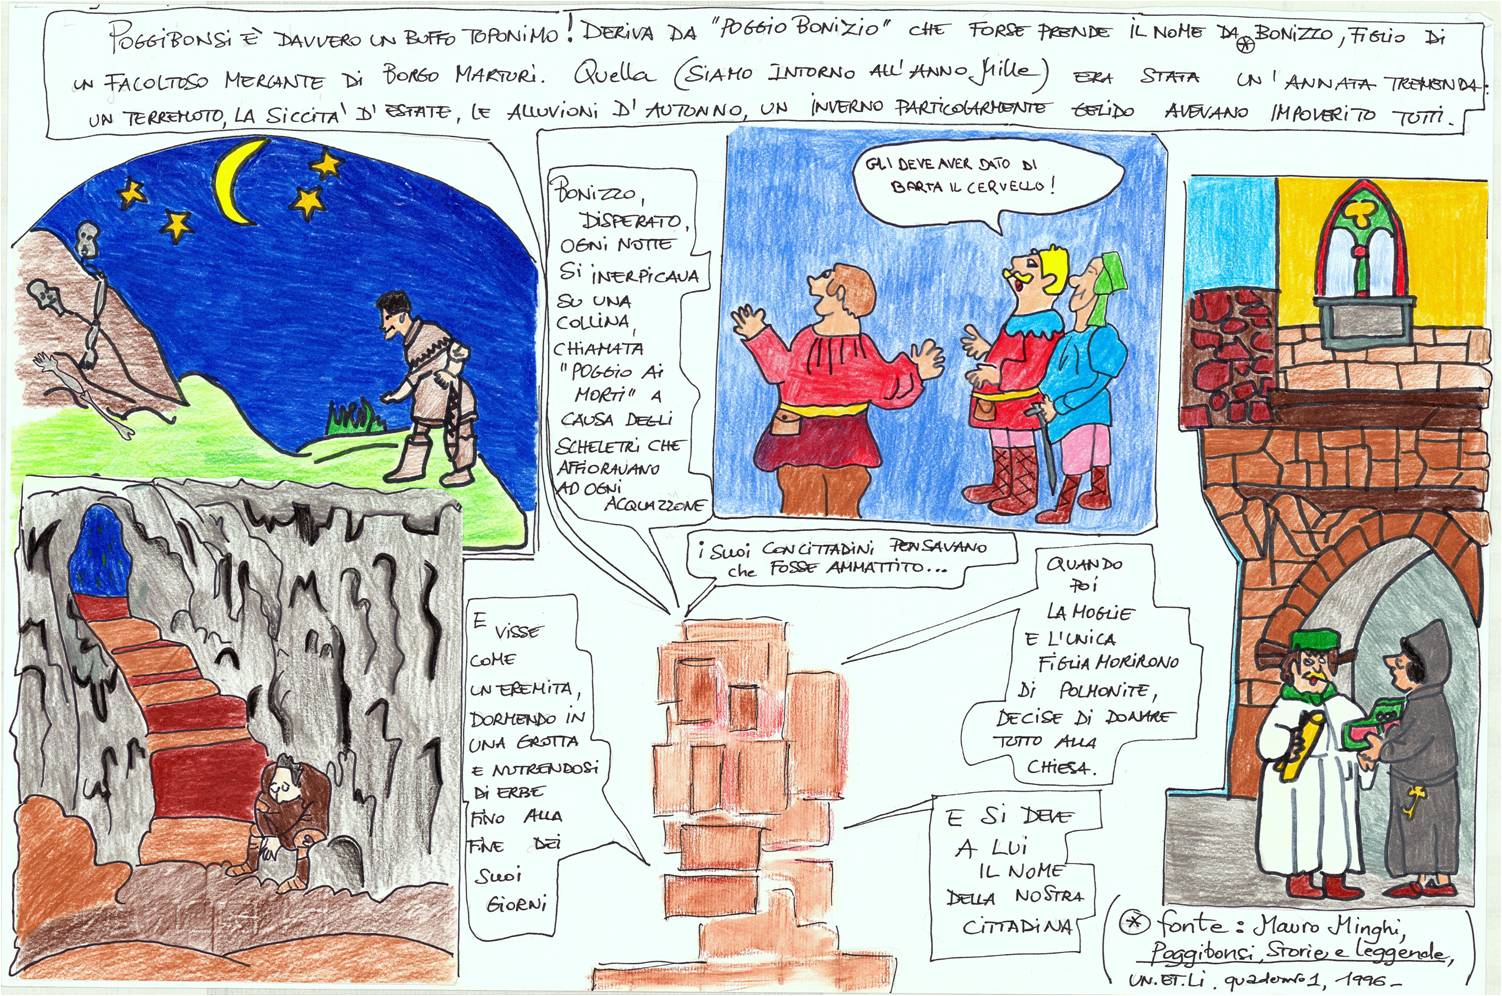 POGGIBONSI È DAVVERO UN BUFFO TOPONIMO! DERIVA DA "POGGIO BONIZIO" CHE FORSE PRENDE IL NOME DA * BONIZZO, FIGLIO DI
UN FACOLTOSO MERCANTE DI BORGO MARTURI. QUELLA (SIAMO INTORNO ALL'ANNO MILLE) ERA STATA UN'ANNATA TREMENDA:
UN TERREMOTO, LA SICCITA' D'ESTATE, LE ALLUVIONI D'AUTUNNO, UN INVERNO PARTICOLARMENTE GELIDO AVEVANO IMPOVERITO TUTTI.
BONIZZO,
DISPERATO,
OGNI NOTTE
SI INERPICAVA
SU UNA
COLLINA,
CHIAMATA
"POGGIO AI
MORTI" A
CAUSA DEGLI
SCHELETRI CHE
AFFIORAVANO
AD OGNI
ACQUAZZONE
GLI DEVE AVER DATO DI
BARTA IL CERVELLO!
i SUOI CONCITTADINI PENSAVANO
che FOSSE AMMATTITO...
QUANDO
POI
LA MOGLIE
E L'UNICA
FIGLIA MORIRONO
DI POLMONITE,
DECISE DI DONARE
TUTTO ALLA
CHIESA.
E VISSE
COME
UN EREMITA,
DORMENDO IN
UNA GROTTA
E NUTRENDOSI
DI ERBE
FINO ALLA
FINE DEI
SUOI
GIORNI
E SI DEVE
A LUI
IL NOME
DELLA NOSTRA
CITTADINA
* fonte: Mauro Minghi,
Poggibonsi, Storie e leggende,
UN.ET.LI. quaderno 1, 1996-